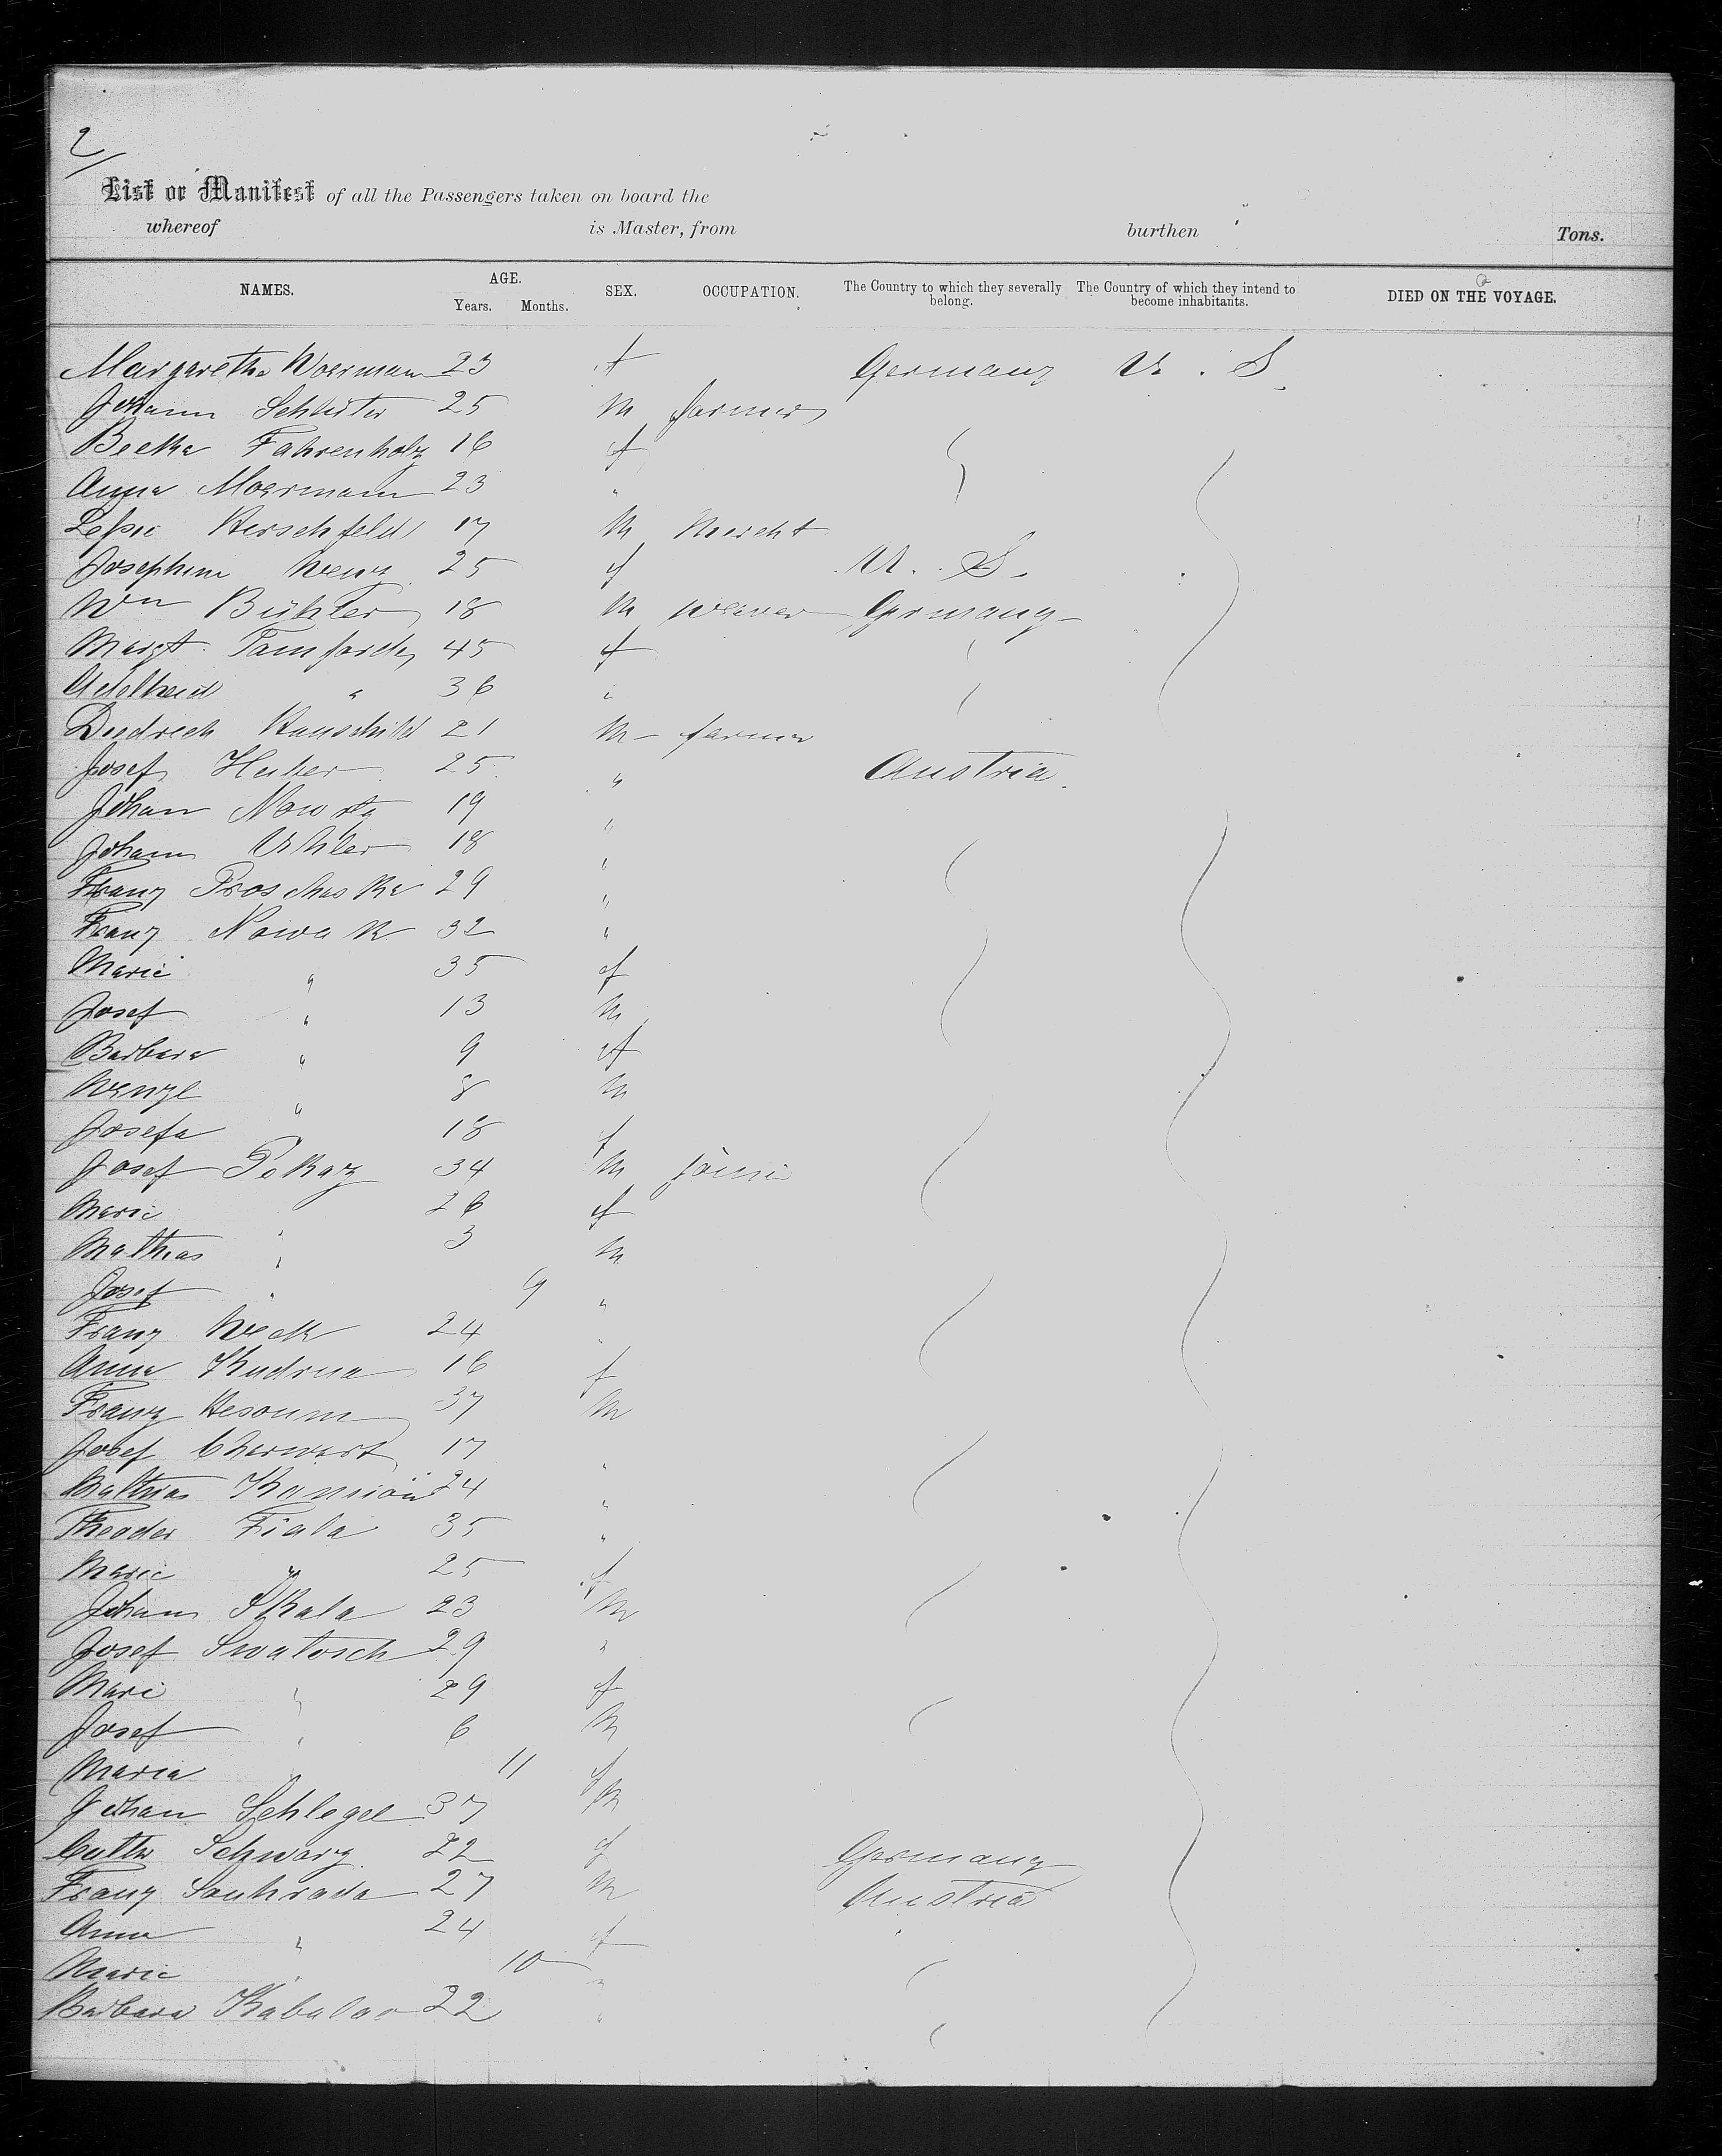 2/
List or Manifest of all the Passengers taken on board the
whereof is Master, from burthen Tons.
NAMES. AGE. Years. Months. SEX. OCCUPATION. The Country to which they severally belong. The Country of which they intend to become inhabitants. DIED ON THE VOYAGE.
Margarethe Woerman 23 f Germany U. S.
Johann Schlüter 25 m farmer
Becka Fahrenholz 16 f
Anna Moermann 23 "
Herschfeld 17 m Mercht
Josephine Wenz 25 f U. S.
Wm Bühler 18 m weaver Germany
Margt. 45 f
Adelheid " 36 "
Diedrich Hauschild 21 m farmer
Josef Huber 25 " Austria.
Johan 19 "
Johann Uhler 18 "
Franz Proschaska 29 "
Franz Nowak 32 "
Marie " 35 f
Josef " 13 m
Barbara " 9 f
Wenzl " 8 m
Josefa 18 f
Josef Pekarz 34 m
Marie " 26 f
Mathias " 3 m
Josef " 9 "
Franz Weck 24 "
Anna Kudrna 16 f
Franz 37 m
Josef 17 "
Mathias 24 "
Theodor Fiala 35 "
Marie " 25 f
Johann Skala 23 m
Josef Swatosch 29 "
Mari " 29 f
Josef " 6 m
Maria " 11 f
Johan Schlegel 37 m
Schwarz 22 f Germany
Franz Souhrada 27 m Austria
Anna " 24 f
Marie " 10 "
Barbara 22 "